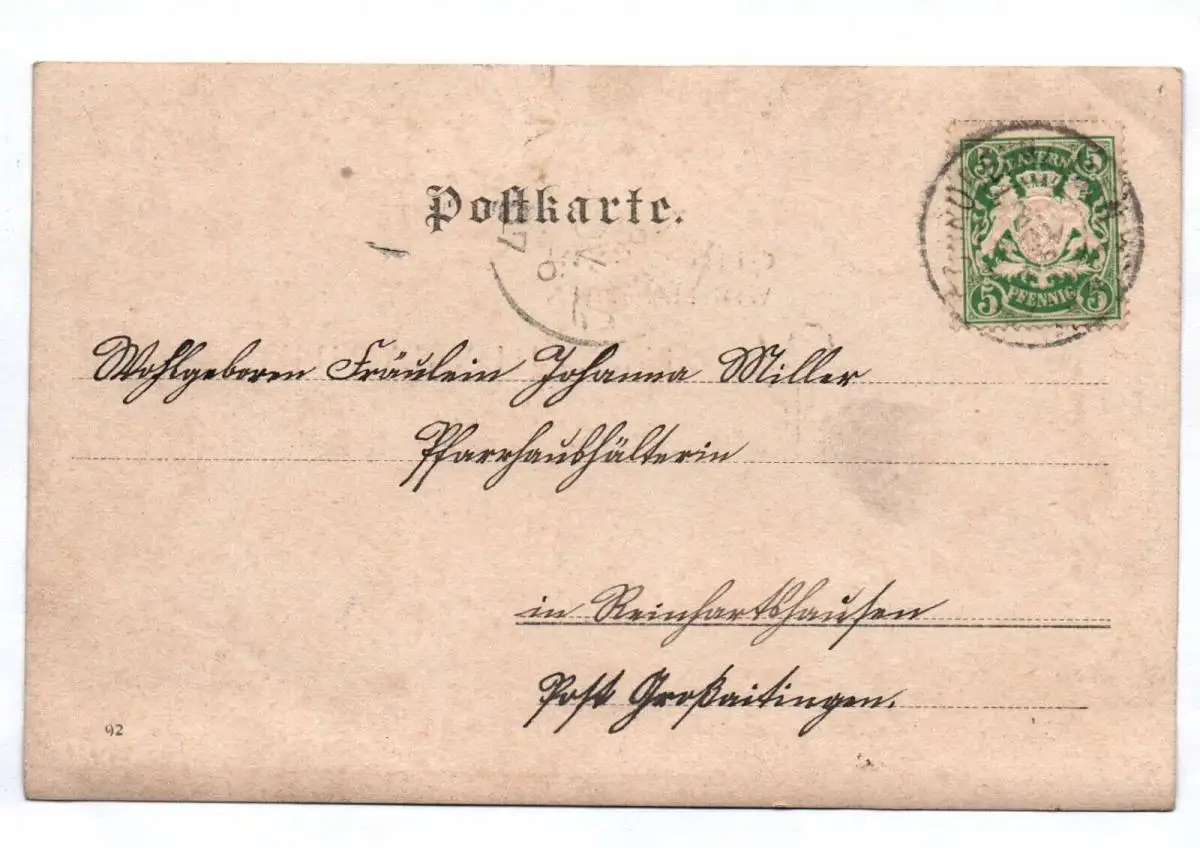 Postkarte.
5 BAYERN 5
5 PFENNIG 5
Wohlgeboren Fräulein Johanna Miller
Pfarrhaushälterin
in Reinhartshausen
Post Großaitingen.
92